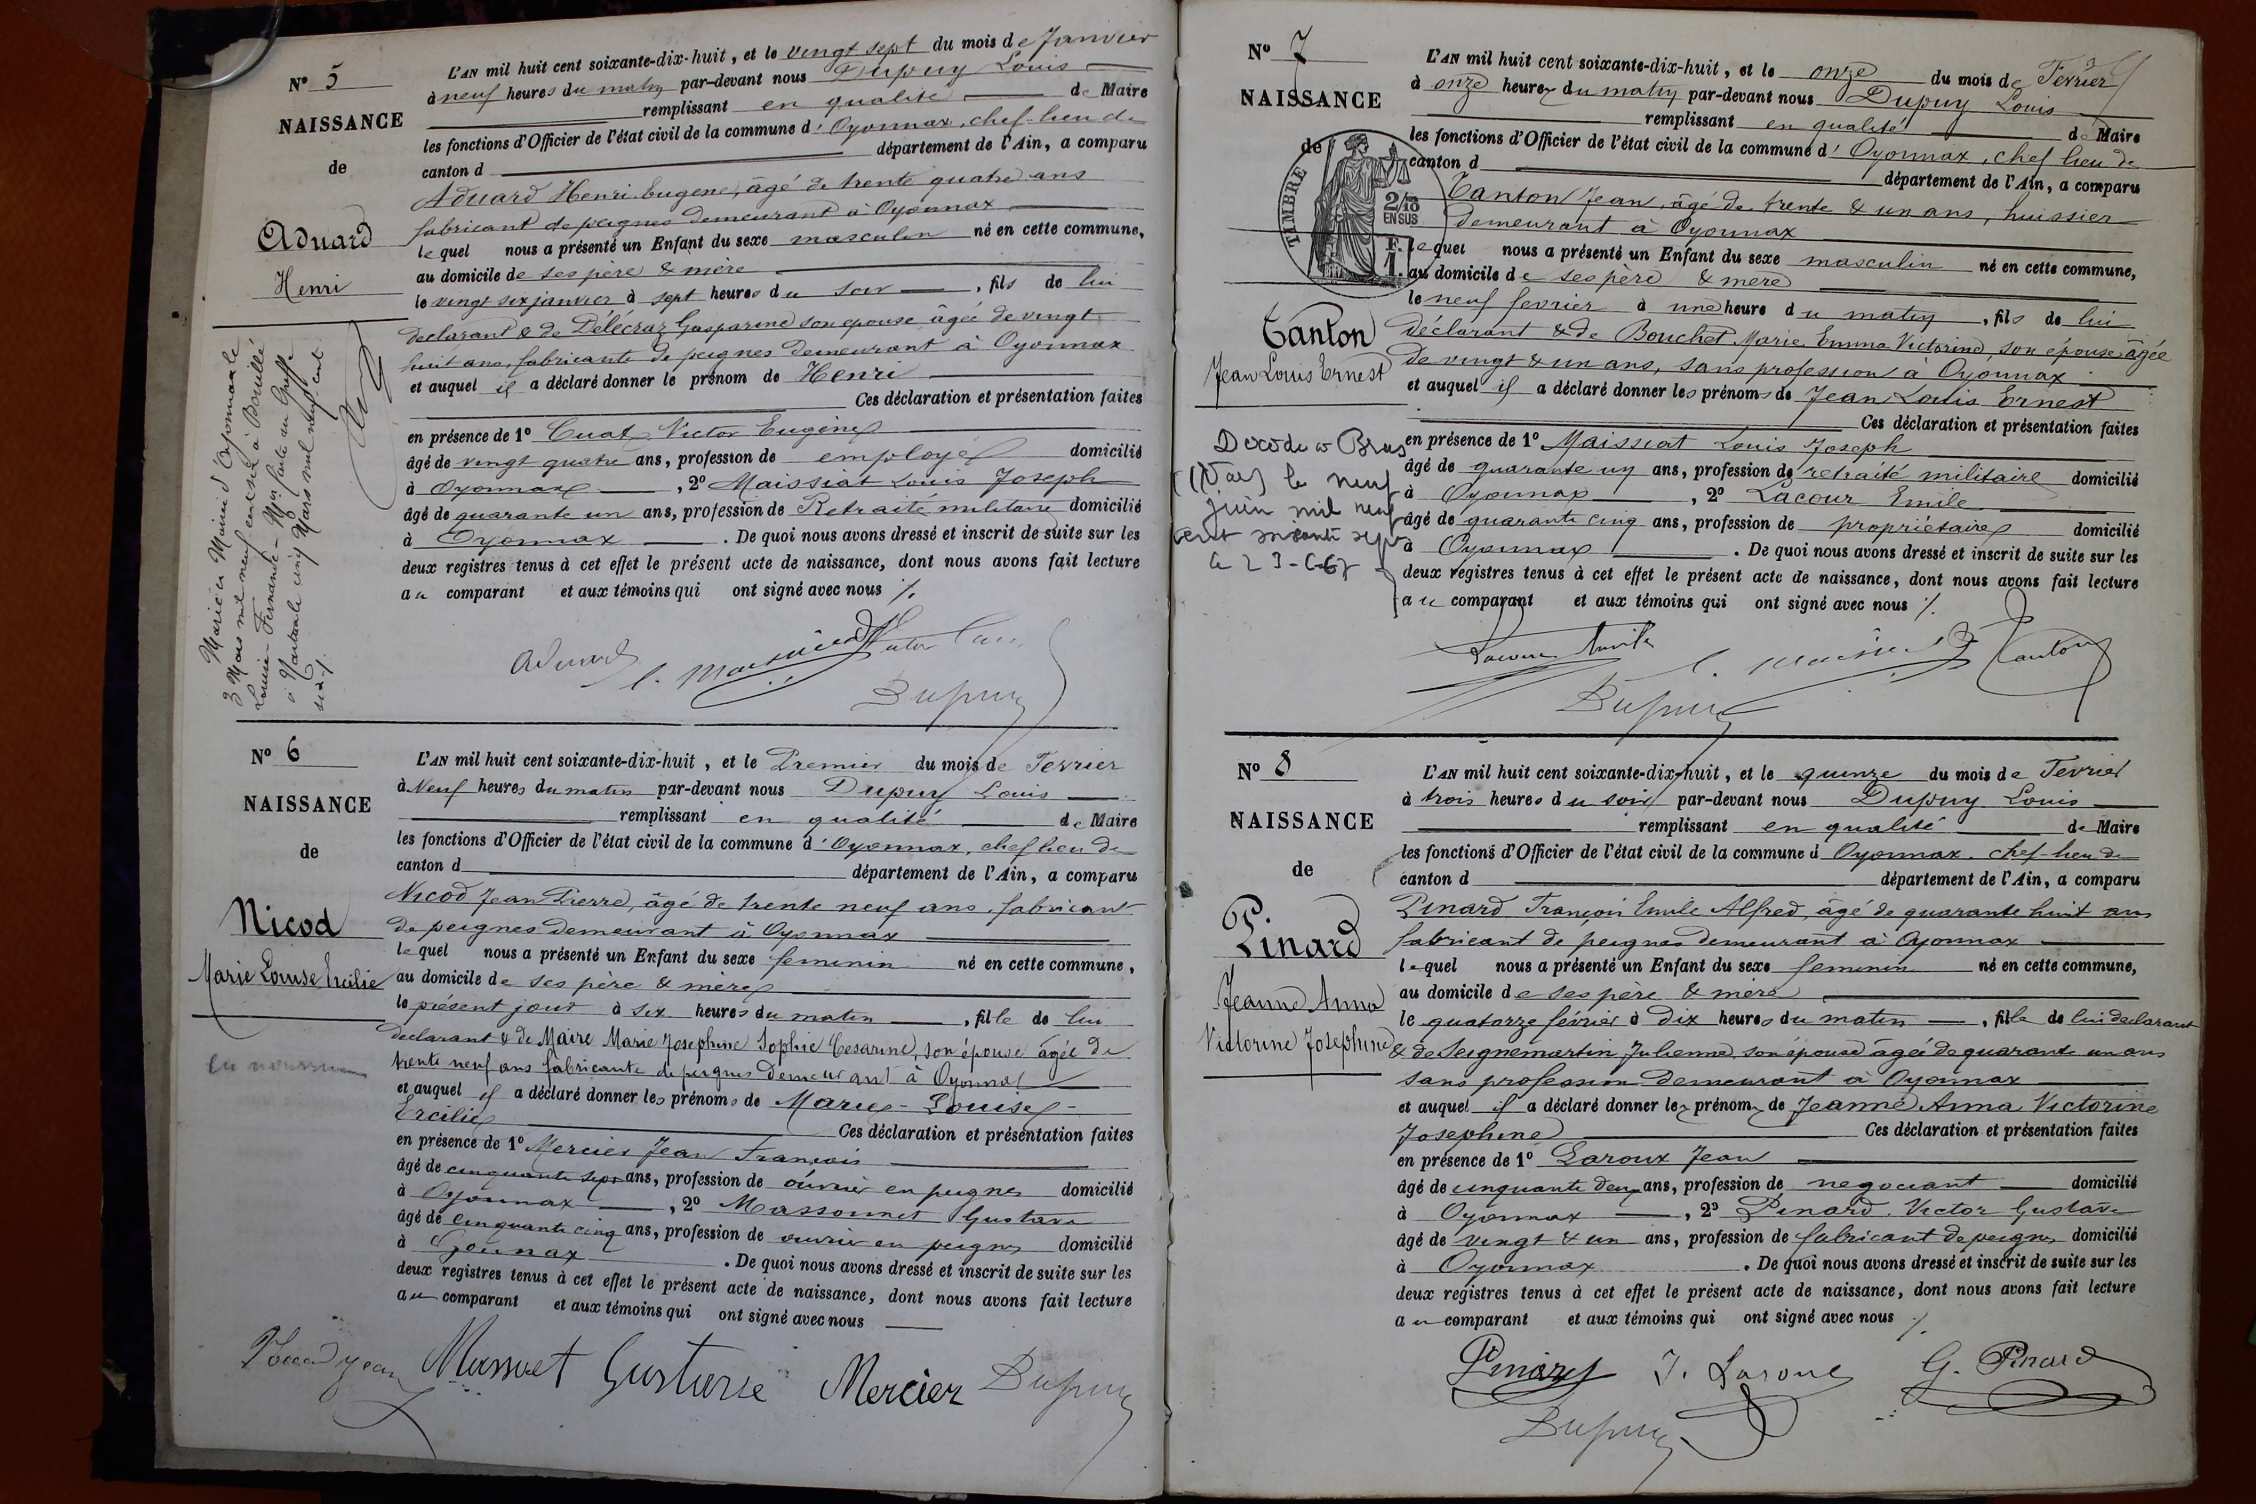 N° 5
NAISSANCE
de
Aduard
Henri
Marié en Mairie d'Oyonnax le
3 Mars mil neuf cent six à Bouillé
Louise Fernande - Mon faite au Greffe
à Nantua le cinq Mars mil neuf cent
six ./.
L'AN mil huit cent soixante-dix-huit, et le vingt sept du mois de Janvier
à neuf heures du matin par-devant nous Dupuy Louis
remplissant en qualité de Maire
les fonctions d'Officier de l'état civil de la commune d'Oyonnax, chef-lieu de
canton d département de l'Ain, a comparu
Aduard Henri Eugene, âgé de trente quatre ans
fabricant de peignes demeurant à Oyonnax
lequel nous a présenté un Enfant du sexe masculin né en cette commune,
au domicile de ses père & mère
le vingt six janvier à sept heures du soir, fils de lui
declarant & de Délécraz Gasparine son epouse âgée de vingt
huit ans, fabricante de peignes demeurant à Oyonnax
et auquel il a déclaré donner le prénom de Henri
Ces déclaration et présentation faites
en présence de 1° Cuat Victor Eugène
âgé de vingt quatre ans, profession de employé domicilié
à Oyonnax, 2° Maissiat Louis Joseph
âgé de quarante un ans, profession de Retraité militaire domicilié
à Oyonnax. De quoi nous avons dressé et inscrit de suite sur les
deux registres tenus à cet effet le présent acte de naissance, dont nous avons fait lecture
au comparant et aux témoins qui ont signé avec nous ./.
Aduard
L. Maissiat
Victor Cuat
Dupuy
N° 6
NAISSANCE
de
Nicod
Marie Louise Ercilie
L'AN mil huit cent soixante-dix-huit, et le Premier du mois de Fevrier
à Neuf heures du matin par-devant nous Dupuy Louis
remplissant en qualité de Maire
les fonctions d'Officier de l'état civil de la commune d'Oyonnax, chef lieu de
canton d département de l'Ain, a comparu
Nicod Jean Pierre, âgé de trente neuf ans, fabricant
de peignes demeurant à Oyonnax
lequel nous a présenté un Enfant du sexe feminin né en cette commune,
au domicile de ses père & mère
le présent jour à six heures du matin, fille de lui
declarant & de Maire Marie Josephine Sophie Cesarine, son épouse âgée de
trente neuf ans fabricante de peignes demeurant à Oyonnax
et auquel il a déclaré donner les prénoms de Marie - Louise -
Ercilie
Ces déclaration et présentation faites
en présence de 1° Mercier Jean François
âgé de cinquante sept ans, profession de ouvrier en peignes domicilié
à Oyonnax, 2° Massonnet Gustave
âgé de cinquante cinq ans, profession de ouvrier en peignes domicilié
à Oyonnax. De quoi nous avons dressé et inscrit de suite sur les
deux registres tenus à cet effet le présent acte de naissance, dont nous avons fait lecture
au comparant et aux témoins qui ont signé avec nous
Nicod Jean
Massonet Gustave
Mercier
Dupuy
N° 7
NAISSANCE
de
TIMBRE
2/10
EN SUS
F.
1.
Tanton
Jean Louis Ernest
Décédé à Bras
(Var) le neuf
juin mil neuf
cent soixante sept
Le 23-6-67
L'AN mil huit cent soixante-dix-huit, et le onze du mois de Fevrier
à onze heures du matin par-devant nous Dupuy Louis
remplissant en qualité de Maire
les fonctions d'Officier de l'état civil de la commune d'Oyonnax, chef lieu de
canton d département de l'Ain, a comparu
Tanton Jean, âgé de trente & un ans, huissier
demeurant à Oyonnax
lequel nous a présenté un Enfant du sexe masculin né en cette commune,
au domicile de ses père & mère
le neuf fevrier à une heure du matin, fils de lui
déclarant & de Bouchet Marie Emma Victorine, son épouse âgée
de vingt & un ans, sans profession à Oyonnax
et auquel il a déclaré donner les prénoms de Jean Louis Ernest
Ces déclaration et présentation faites
en présence de 1° Maissiat Louis Joseph
âgé de quarante un ans, profession de retraité militaire domicilié
à Oyonnax, 2° Lacour Emile
âgé de quarante cinq ans, profession de propriétaire domicilié
à Oyonnax. De quoi nous avons dressé et inscrit de suite sur les
deux registres tenus à cet effet le présent acte de naissance, dont nous avons fait lecture
au comparant et aux témoins qui ont signé avec nous ./.
Lacour Emile
L. Maissiat
Tanton
Dupuy
N° 8
NAISSANCE
de
Pinard
Jeanne Anna
Victorine Josephine
L'AN mil huit cent soixante-dix-huit, et le quinze du mois de Fevrier
à trois heures du soir par-devant nous Dupuy Louis
remplissant en qualité de Maire
les fonctions d'Officier de l'état civil de la commune d Oyonnax, chef-lieu de
canton d département de l'Ain, a comparu
Pinard François Emile Alfred, âgé de quarante huit ans
fabricant de peignes demeurant à Oyonnax
lequel nous a présenté un Enfant du sexe feminin né en cette commune,
au domicile de ses père & mère
le quatorze février à dix heures du matin, fille de lui declarant
& de Seignemartin Julienne, son épouse âgée de quarante un ans
sans profession demeurant à Oyonnax
et auquel il a déclaré donner les prénoms de Jeanne Anna Victorine
Josephine
Ces déclaration et présentation faites
en présence de 1° Laroux Jean
âgé de cinquante deux ans, profession de negociant domicilié
à Oyonnax, 2° Pinard Victor Gustave
âgé de vingt & un ans, profession de fabricant de peignes domicilié
à Oyonnax. De quoi nous avons dressé et inscrit de suite sur les
deux registres tenus à cet effet le présent acte de naissance, dont nous avons fait lecture
au comparant et aux témoins qui ont signé avec nous ./.
Pinard
J. Laroux
G. Pinard
Dupuy